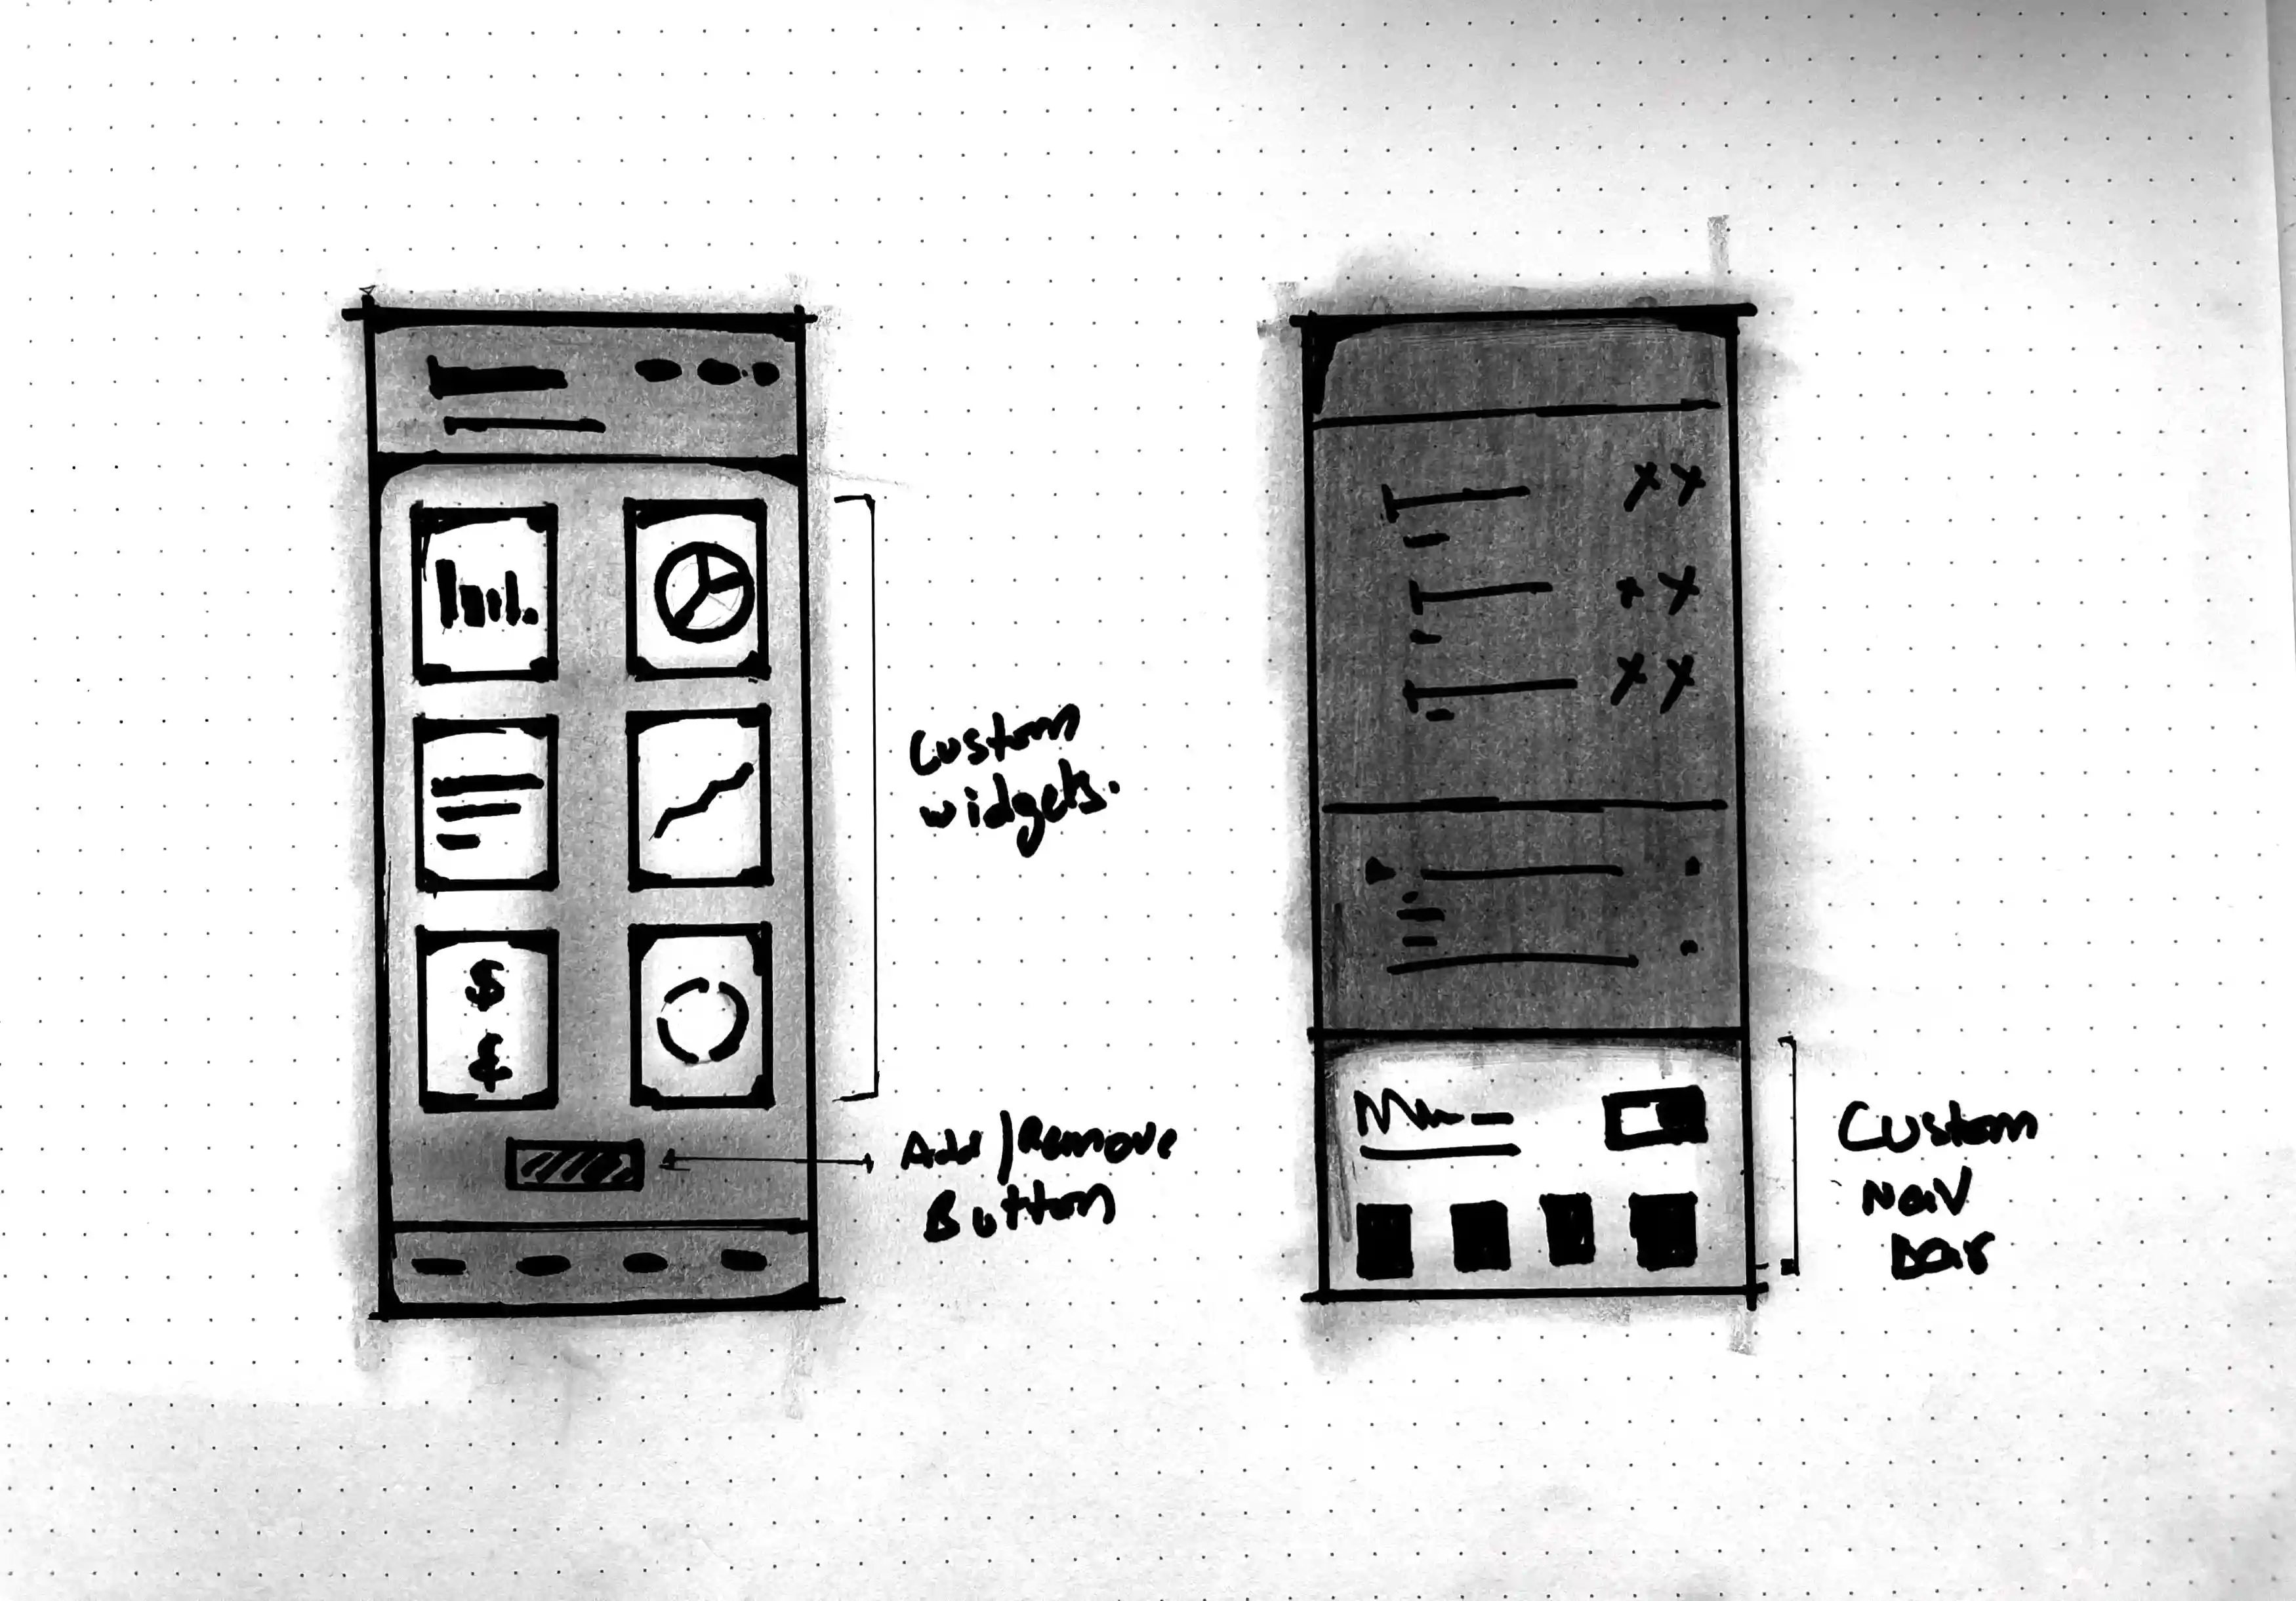 $
¢
Custom
widgets.
Add/Remove
Button
Custom
Nav
bar